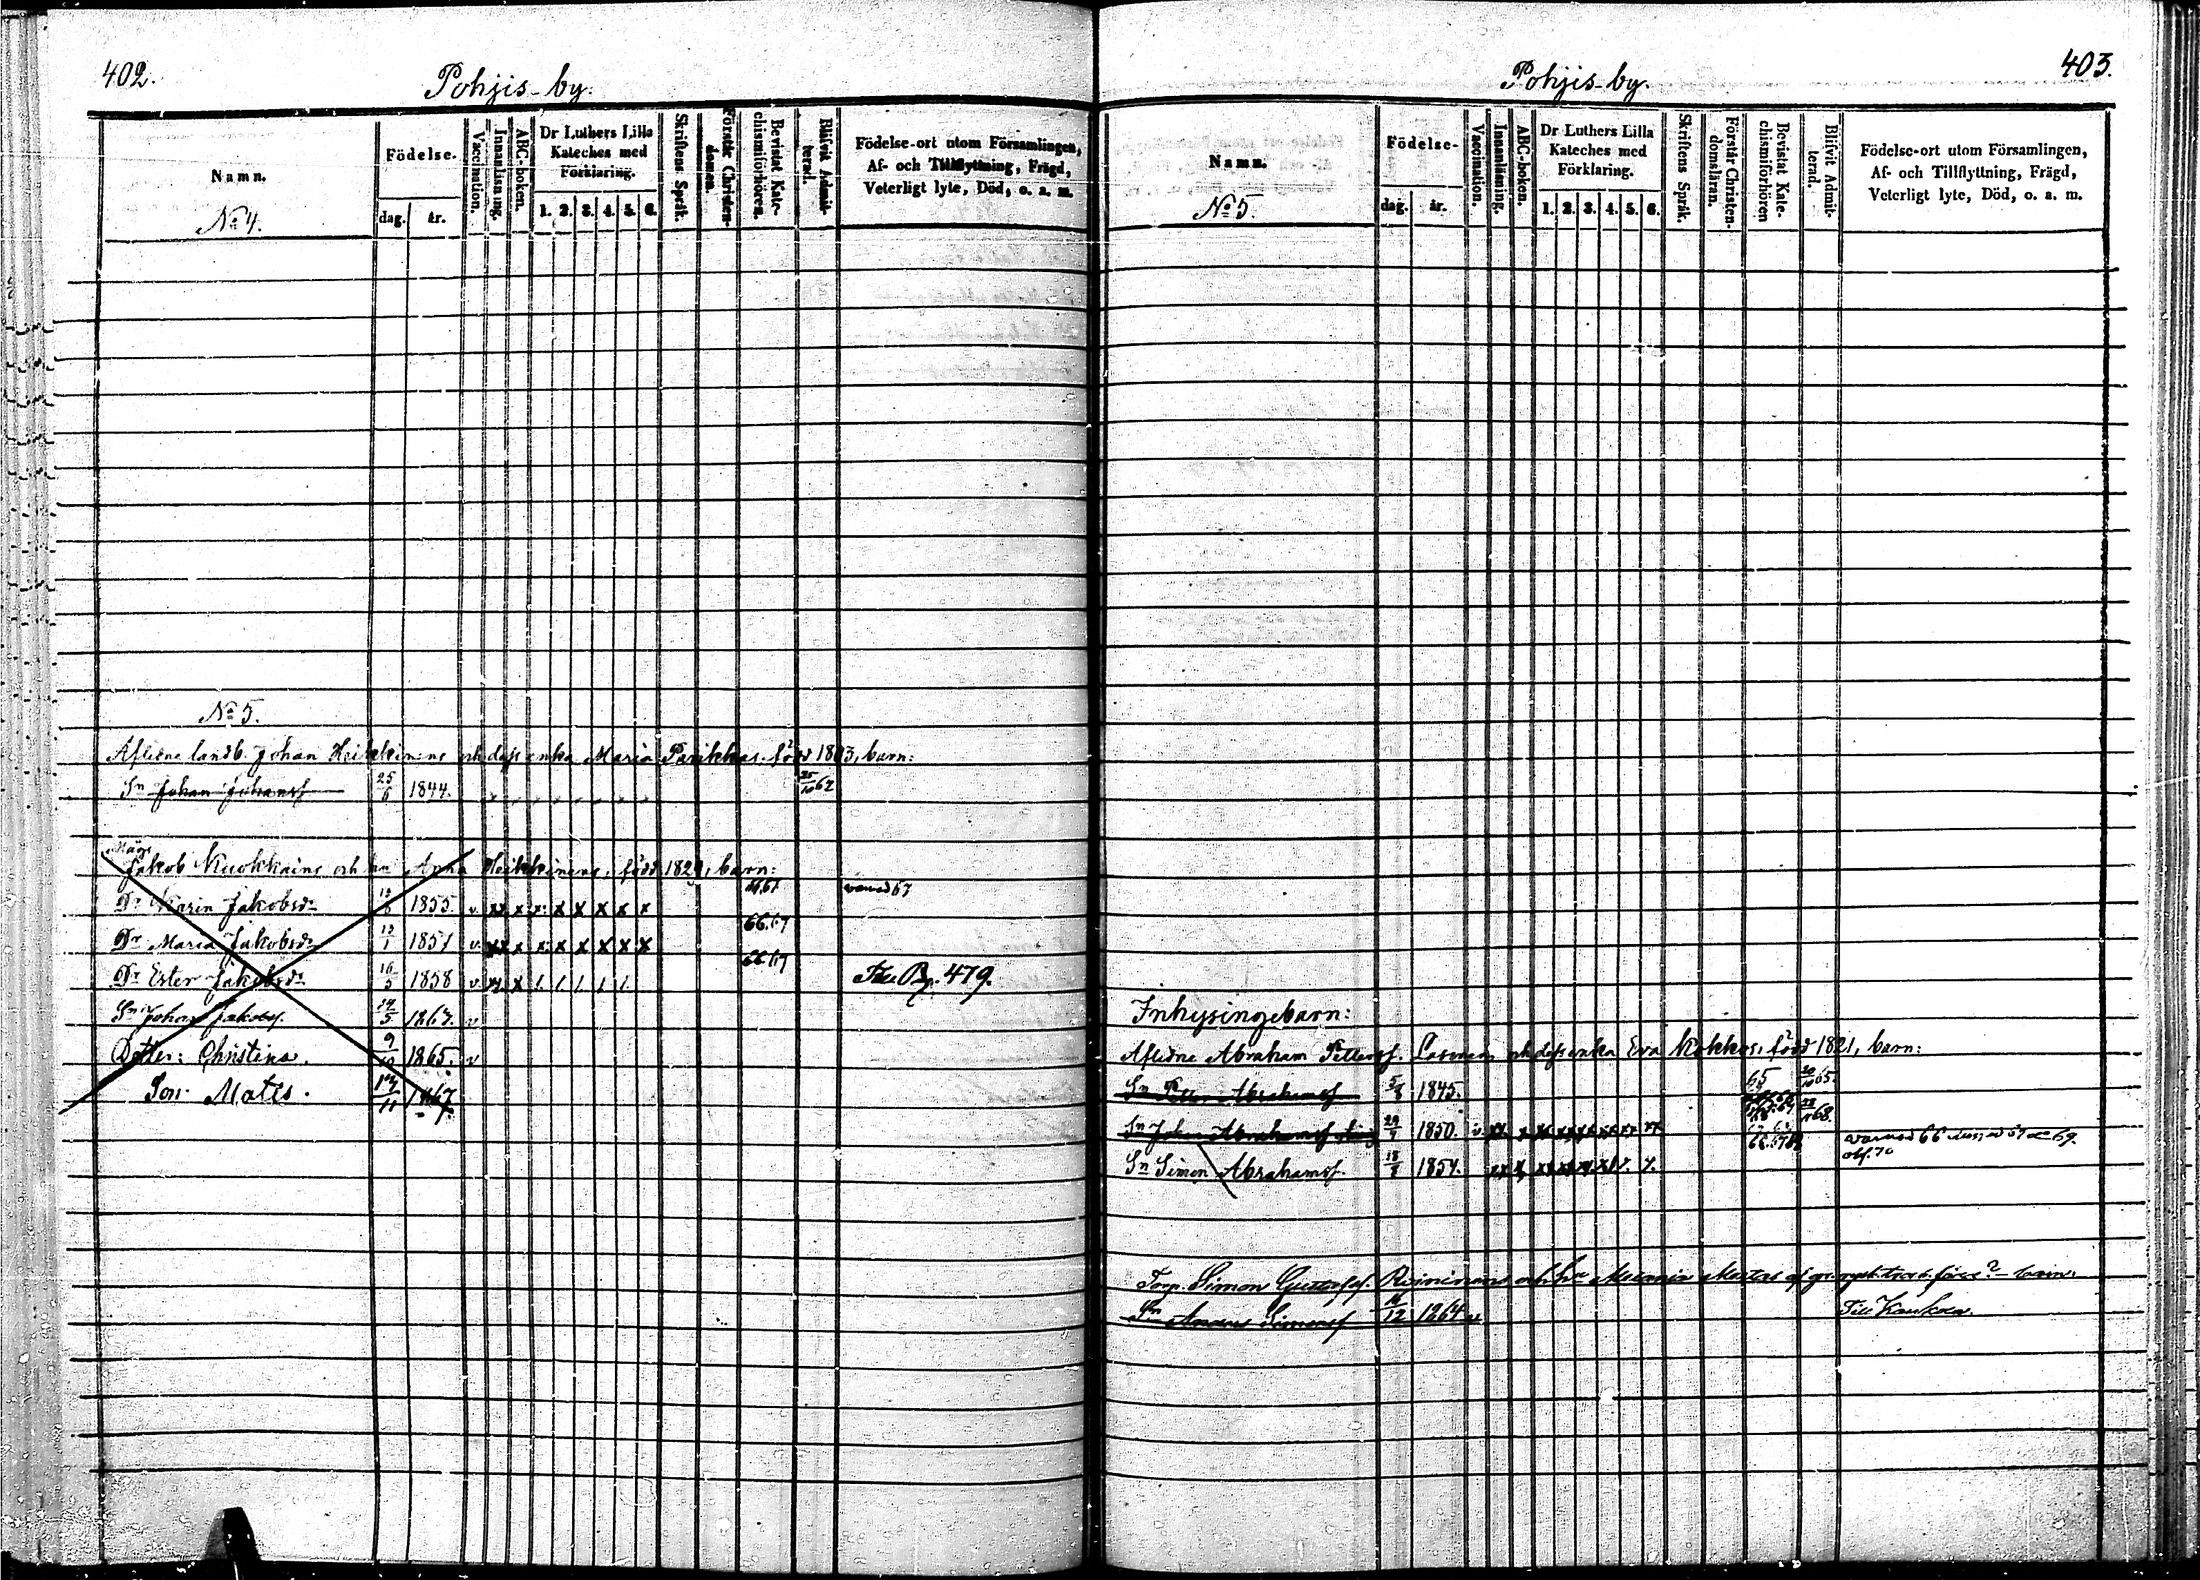 402.
Pohjis-by.
Namn.
Födelse-
dag. år.
Vaccination.
Innanläsning.
ABC-boken.
Dr Luthers Lilla Kateches med Förklaring.
1. 2. 3. 4. 5. 6.
Skriftens Språk.
Förstår Christendomen.
Bevistat Katechismiförhören.
Blifvit Admitterad.
Födelse-ort utom Församlingen,
Af- och Tillflyttning, Frägd,
Veterligt lyte, Död, o. a. m.
No 4.
No 5.
Aflidne landb. Johan Heikkinens och dess enka Maria Parikkas född 1803, barn:
Sn Johan Johansf 25/6 1844. 25/10 62
Måge
Jakob Kuokkains och hu Anna Heikkinens, född 1829, barn:
Dr Karin Jakobsdr 1855. v. xx x x x x x x x warnad 67
Dr Maria Jakobsdr 1857 v. xx x x x x x x x 66.67
Dr Ester Jakobsdr 16/5 1858 v xx x 66.67
Pag. 479.
Sn Johan Jakobsf. 24/5 1863. v
Dotter: Christina. 1865. v
Son Matts. 1867.
403.
Pohjis-by.
Namn.
Födelse-
dag. år.
Vaccination.
Innanläsning.
ABC-boken.
Dr Luthers Lilla Kateches med Förklaring.
1. 2. 3. 4. 5. 6.
Skriftens Språk.
Förstår Christendomsläran.
Bevistat Katechismiförhören
Blifvit Admitterad.
Födelse-ort utom Församlingen,
Af- och Tillflyttning, Frägd,
Veterligt lyte, Död, o. a. m.
No 5.
Inhysingebarn:
Aflidne Abraham Pettersf. och dess enka Eva Kokkos, född 1821, barn:
Sn Petter Abrahamsf 5/8 1845. 65 20/10 65.
Sn Johan Abrahamsf 29/7 1850. v. xx. 68.
Sn Simon Abrahamsf. 18/8 1854. warnad 66 69.
obf. 70
Torp. Simon Gustafsf. barn:
Sn Anders Simonsf 12 1864 v Till Kaukola.